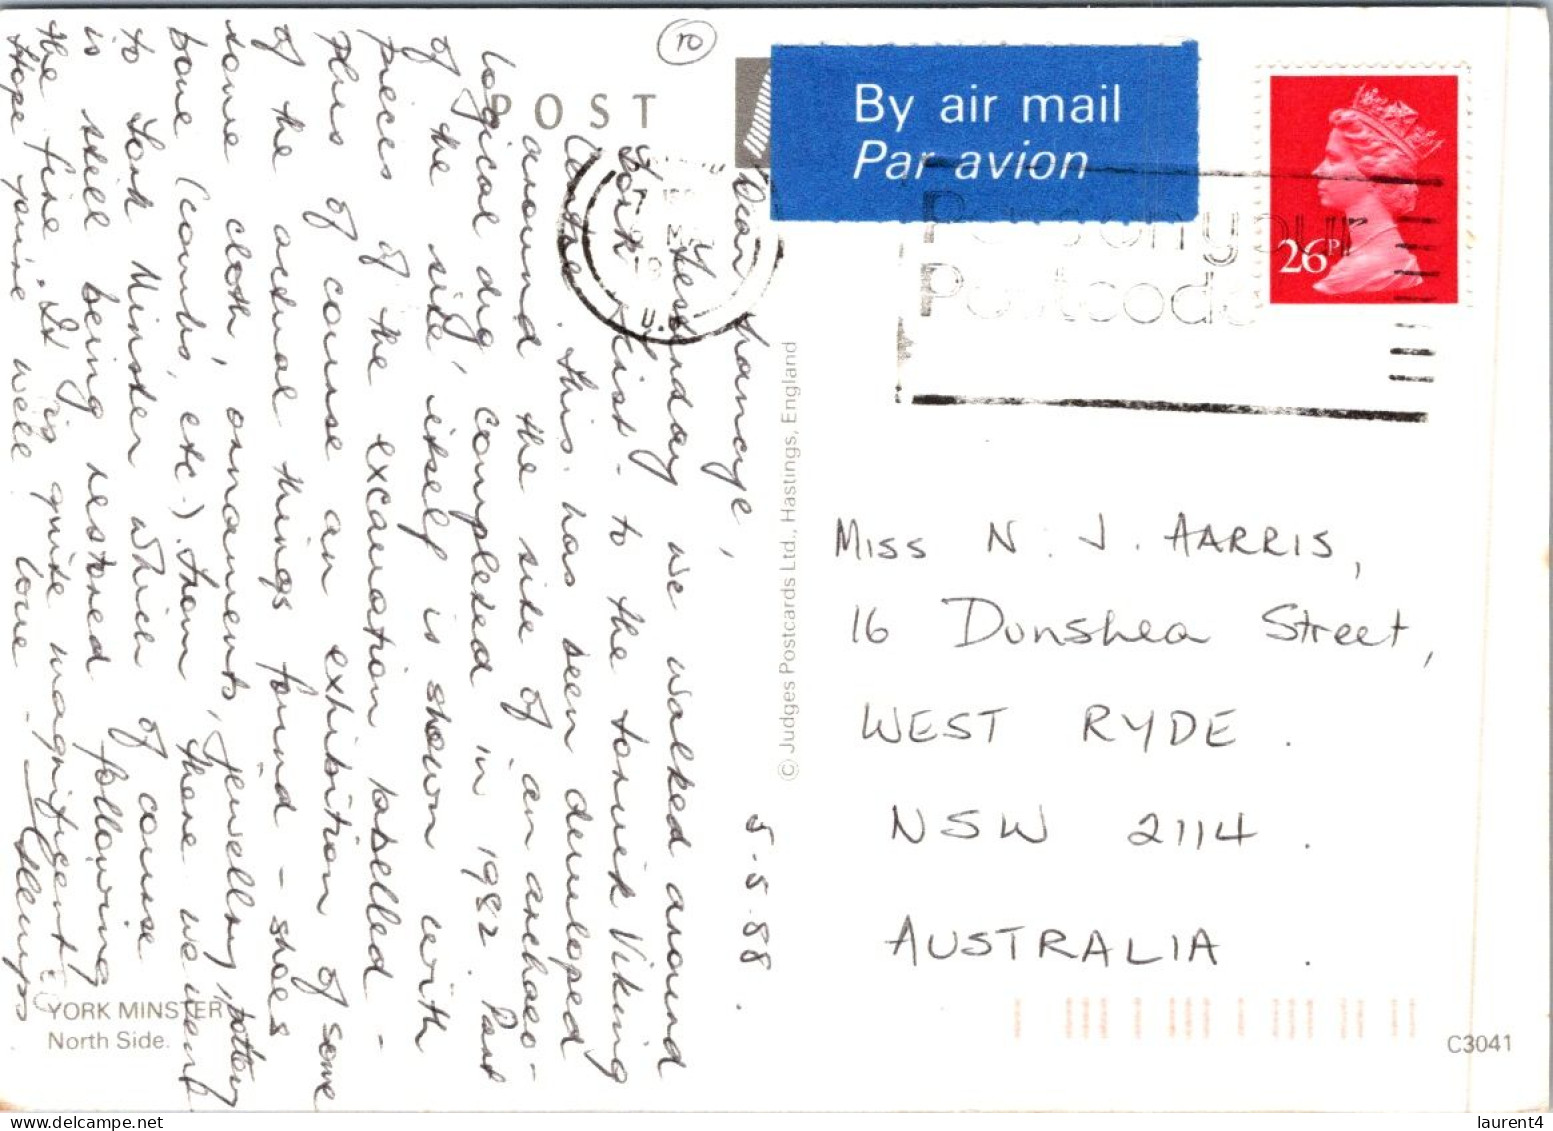 10
POST
By air mail
Par avion
26P
Pass on your
Postcode
5.5.88.
Dear Nancye,
Yesterday we walked around
York first - to the Jorvik Viking
Centre. This has been developed
around the side of an archaeo-
logical dig completed in 1982. Part
of the 'site' itself is shown with
pieces of the excavation labelled -
plus of course an exhibition of some
of the actual things found - shoes
some cloth, ornaments, jewellery, pottery
bone (combs, etc.). From there we went
to York Minster which of course
is still being restored following
the fire. It is quite magnificent.
Hope you're well love
© Judges Postcards Ltd., Hastings, England
MISS N. J. HARRIS,
16 Dunshea Street,
WEST RYDE.
NSW 2114.
AUSTRALIA.
YORK MINSTER
North Side.
C3041
laurent4